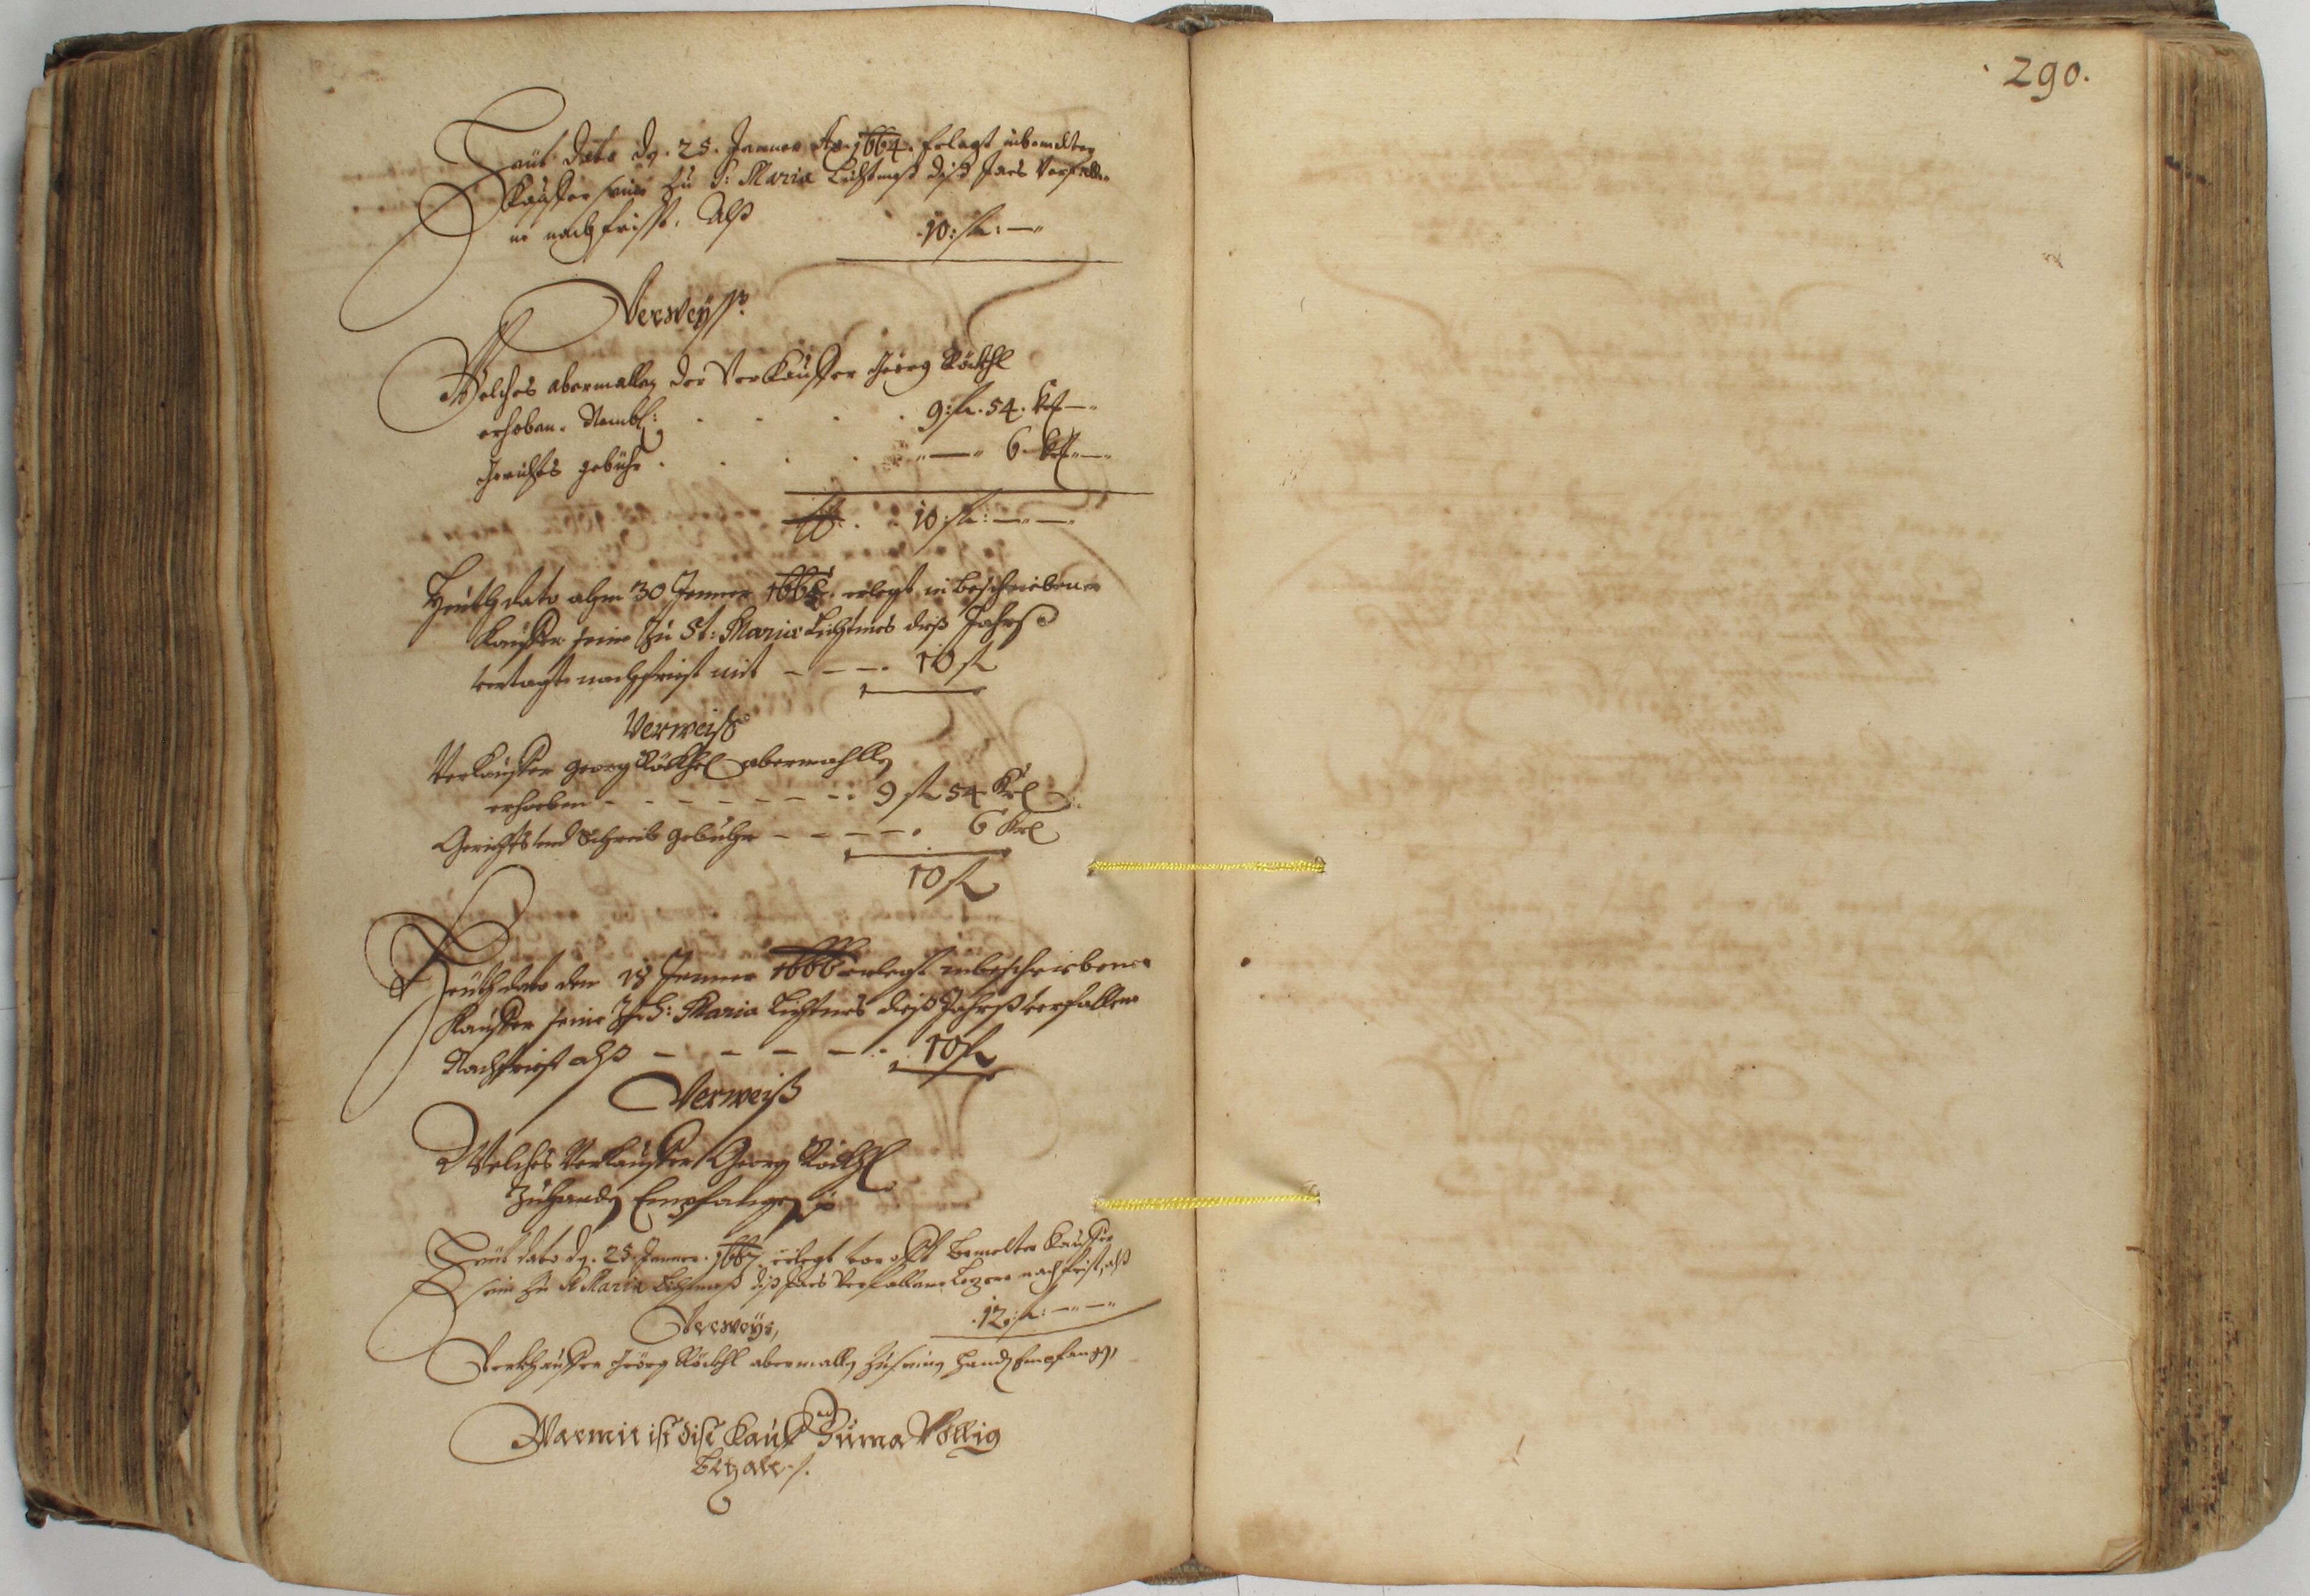 290.
Heut dato dẽ. 25. Jenner Ao. 1664. Erlegt inbemelter
Kauffer seine zu S: Maria Liechtmeß diß Jars Verfalle-
ne nachfrist. Alß .10: fl: —
Verweyß.
Welches abermallen der Verkauffer Georg Röckhl
erhoben. Nembl: . . . 9: fl. 54. kr —
Gerichts gebühr . . . — 6. kr —
10: fl: — —
Heuth dato alhm 30 Jenner 1665. erlegt inbeschriebener
Kauffer seine zu St: Maria Liechtmes diß Jahrß
vertagte nachfrist mit — — — 10 fl
Verweiß
Verkauffer Georg Röckhel abermahlln
erhoeben - - - - - - 9 fl 54 Kr
Gerichts und Schreib gebuhr - - - - 6 Kr
10 fl
Heuth dato den Jenner 1666 erlegt inbeschriebener
Kauffer seine Zu S: Maria Liechtmes diß Jahrß verfallene
Nachfrist alß — — — — 10 fl
Verweiß
Welches Verkauffer Georg Röckhl
Zuhanden Empfangen
Heut dato dẽ. 25. Jenner. 1667. erlegt vor offt Bemelter Kauffer
sein zu St Maria Liechtmeß diß Jars Verfallene Lezere nachfrist, alß
.12: fl: — —
Verweys,
Verkhauffer Georg Röckhl abermalln zu seinen Handen Empfangen,
Warmit ist dise Kauff Suma Völlig
Bezalt.